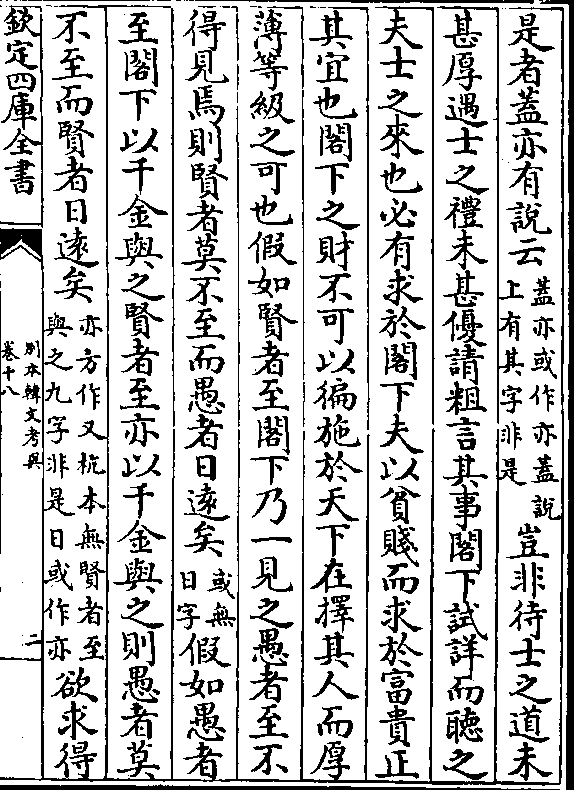 是者蓋亦有說云蓋亦或作亦蓋說上有其字非是豈非待士之道未
甚厚遇士之禮未甚優請粗言其事閣下試詳而聽之
夫士之來也必有求於閣下夫以貧賤而求於富貴正
其宜也閣下之財不可以徧施於天下在擇其人而厚
薄等級之可也假如賢者至閣下乃一見之愚者至不
得見焉則賢者莫不至而愚者日遠矣或無日字假如愚者
至閣下以千金與之賢者至亦以千金與之則愚者莫
不至而賢者日遠矣亦方作又杭本無賢者至與之九字非是日或作亦欲求得
欽定四庫全書
別本韓文考異
卷十八
二